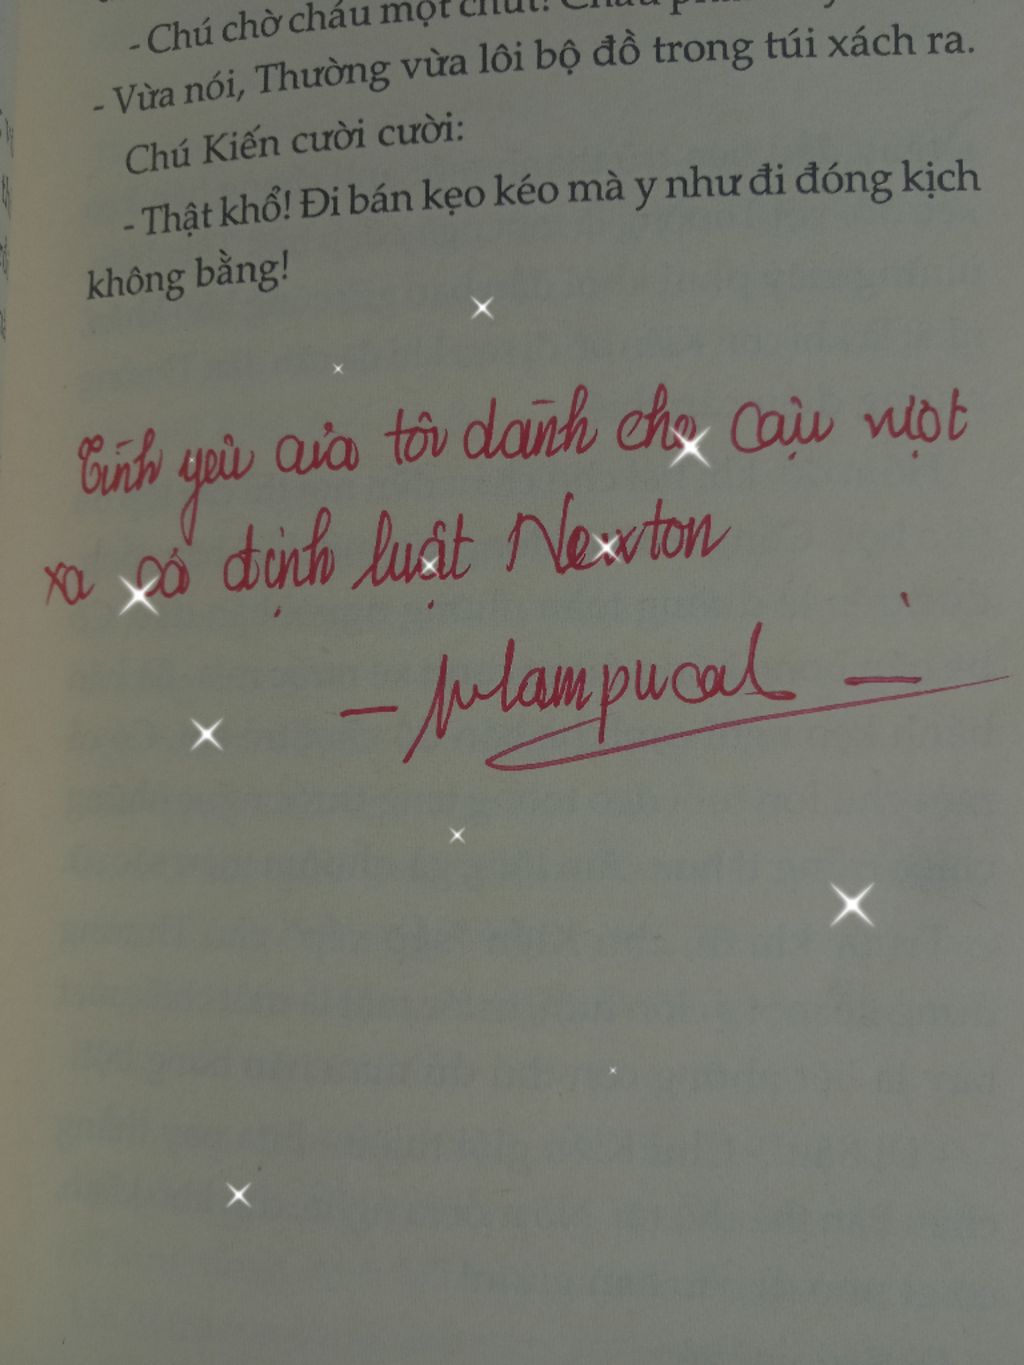 - Chú chờ cháu một chút!
- Vừa nói, Thường vừa lôi bộ đồ trong túi xách ra.
Chú Kiến cười cười:
- Thật khổ! Đi bán kẹo kéo mà y như đi đóng kịch
không bằng!
Tình yêu của tôi dành cho cậu vượt
xa cả định luật Newton